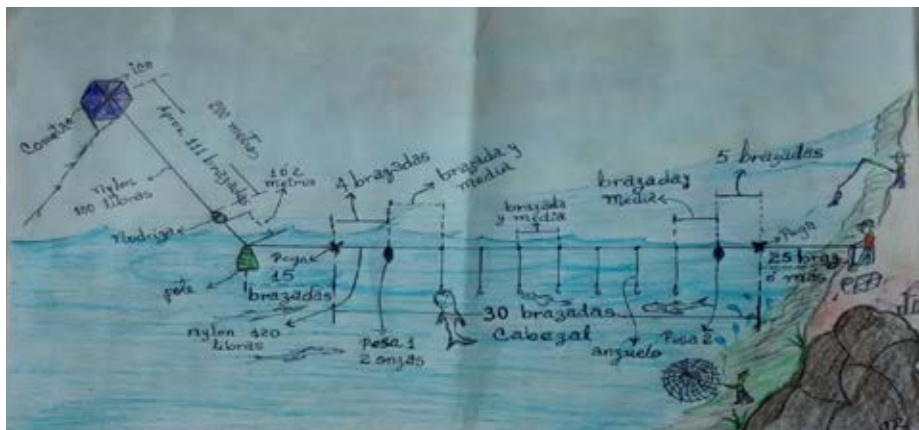 Cometa
200 metros
Aprox. 111 brazadas
Nylon
100 libras
1 ó 2
metros
4 brazadas
brazada y
media
brazada
y media
brazada y
media
5 brazadas
pote
15
brazadas
Nylon 120
libras
Pesa 1
2 onzas
30 brazadas
Cabezal
anzuelo
Pesa 2
25 braz
ó mas